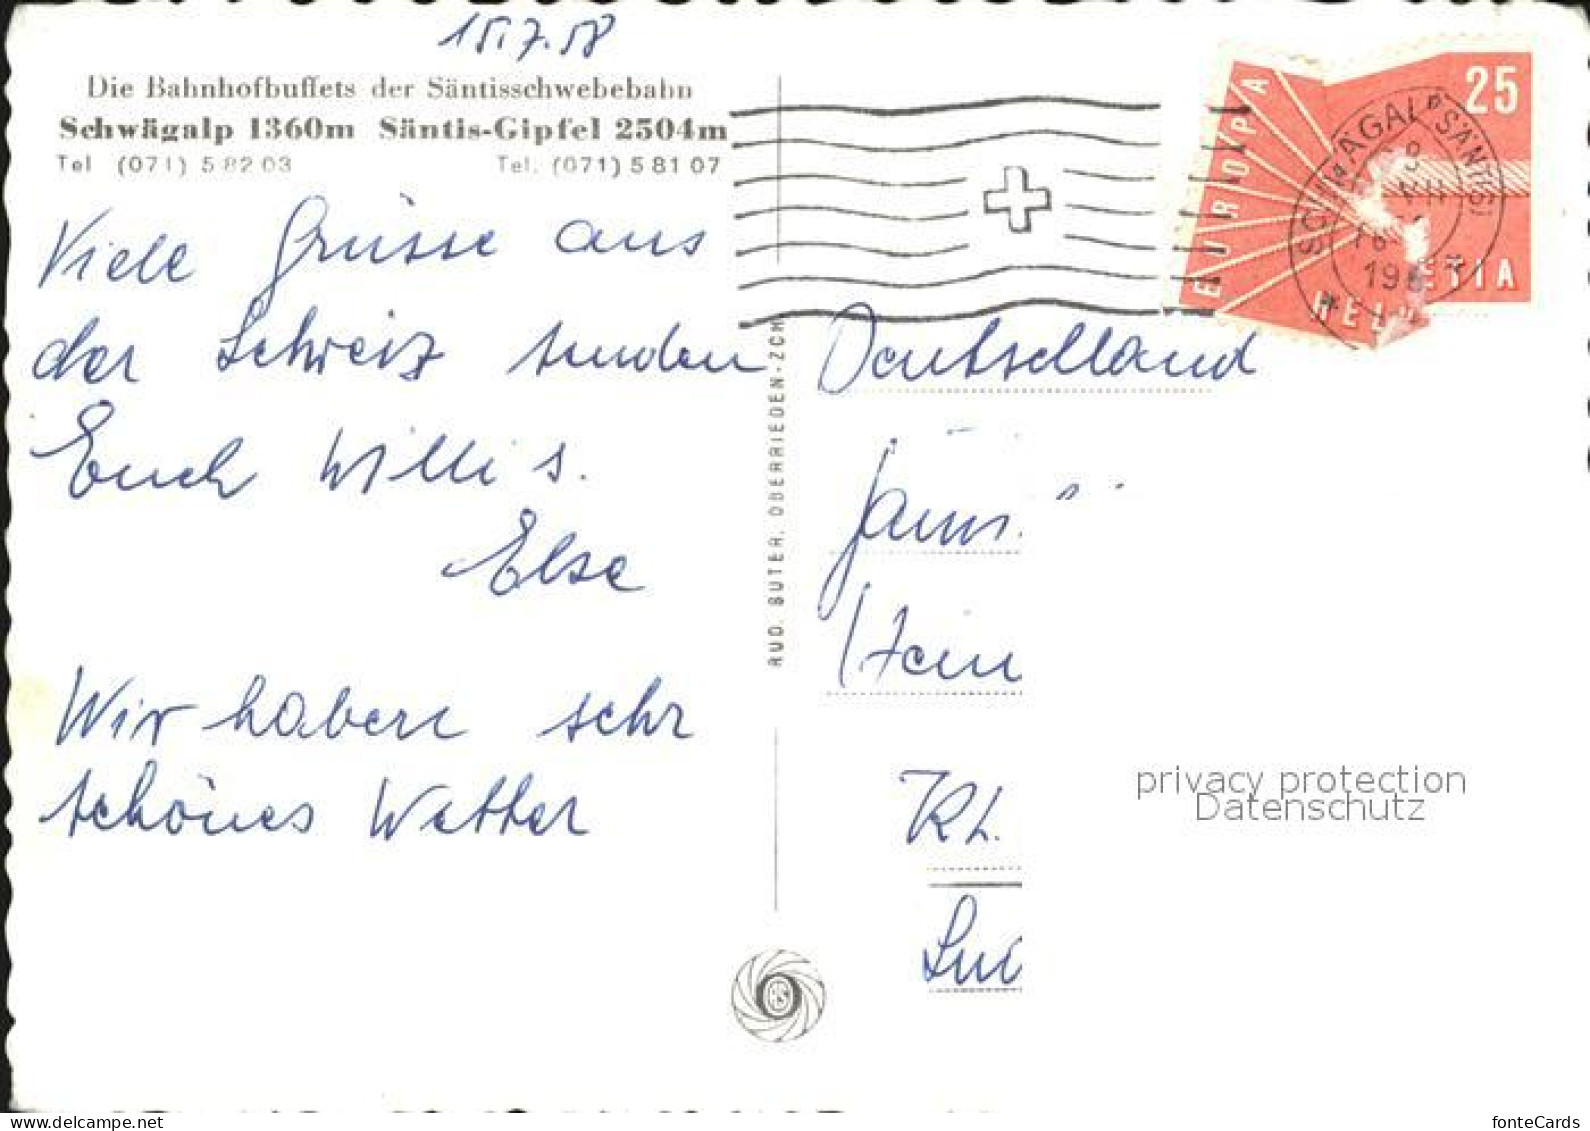 15.7.58
Die Bahnhofbuffets der Säntisschwebebahn
Schwägalp 1360m Säntis-Gipfel 2504m
Tel (071) 5 82 03 Tel. (071) 5 81 07
Viele Grüsse aus
der Schweiz senden
Euch Willi s.
Else
Wir haben sehr
schönes Wetter
RUD. SUTER, OBERRIEDEN-ZCH
EUROPA
25
HELVETIA
SCHWÄGALP (SÄNTIS)
Deutschland
privacy protection
Datenschutz
fonteCards
www.delcampe.net